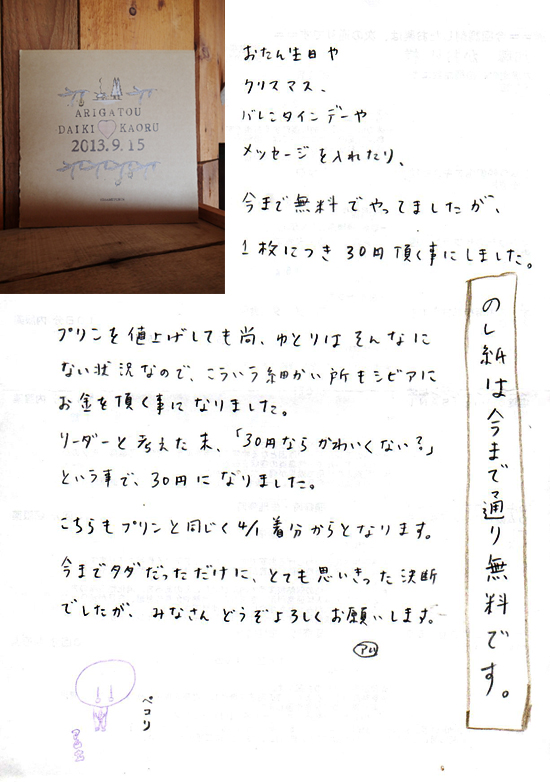 ARIGATOU
DAIKI KAORU
2013.9.15
おたん生日や
クリスマス、
バレンタインデーや
メッセージを入れたり、
今まで無料でやってましたが、
1枚につき30円頂く事にしました。
のし紙は今まで通り無料です。
プリンを値上げしても尚、ゆとりはそんなに
ない状況なので、こういう細かい所もシビアに
お金を頂く事になりました。
リーダーと考えた末、「30円ならかわいくない?」
という事で、30円になりました。
こちらもプリンと同じく4/1着分からとなります。
今までタダだっただけに、とても思いきった決断
でしたが、みなさんどうぞよろしくお願いします。
ペコリ